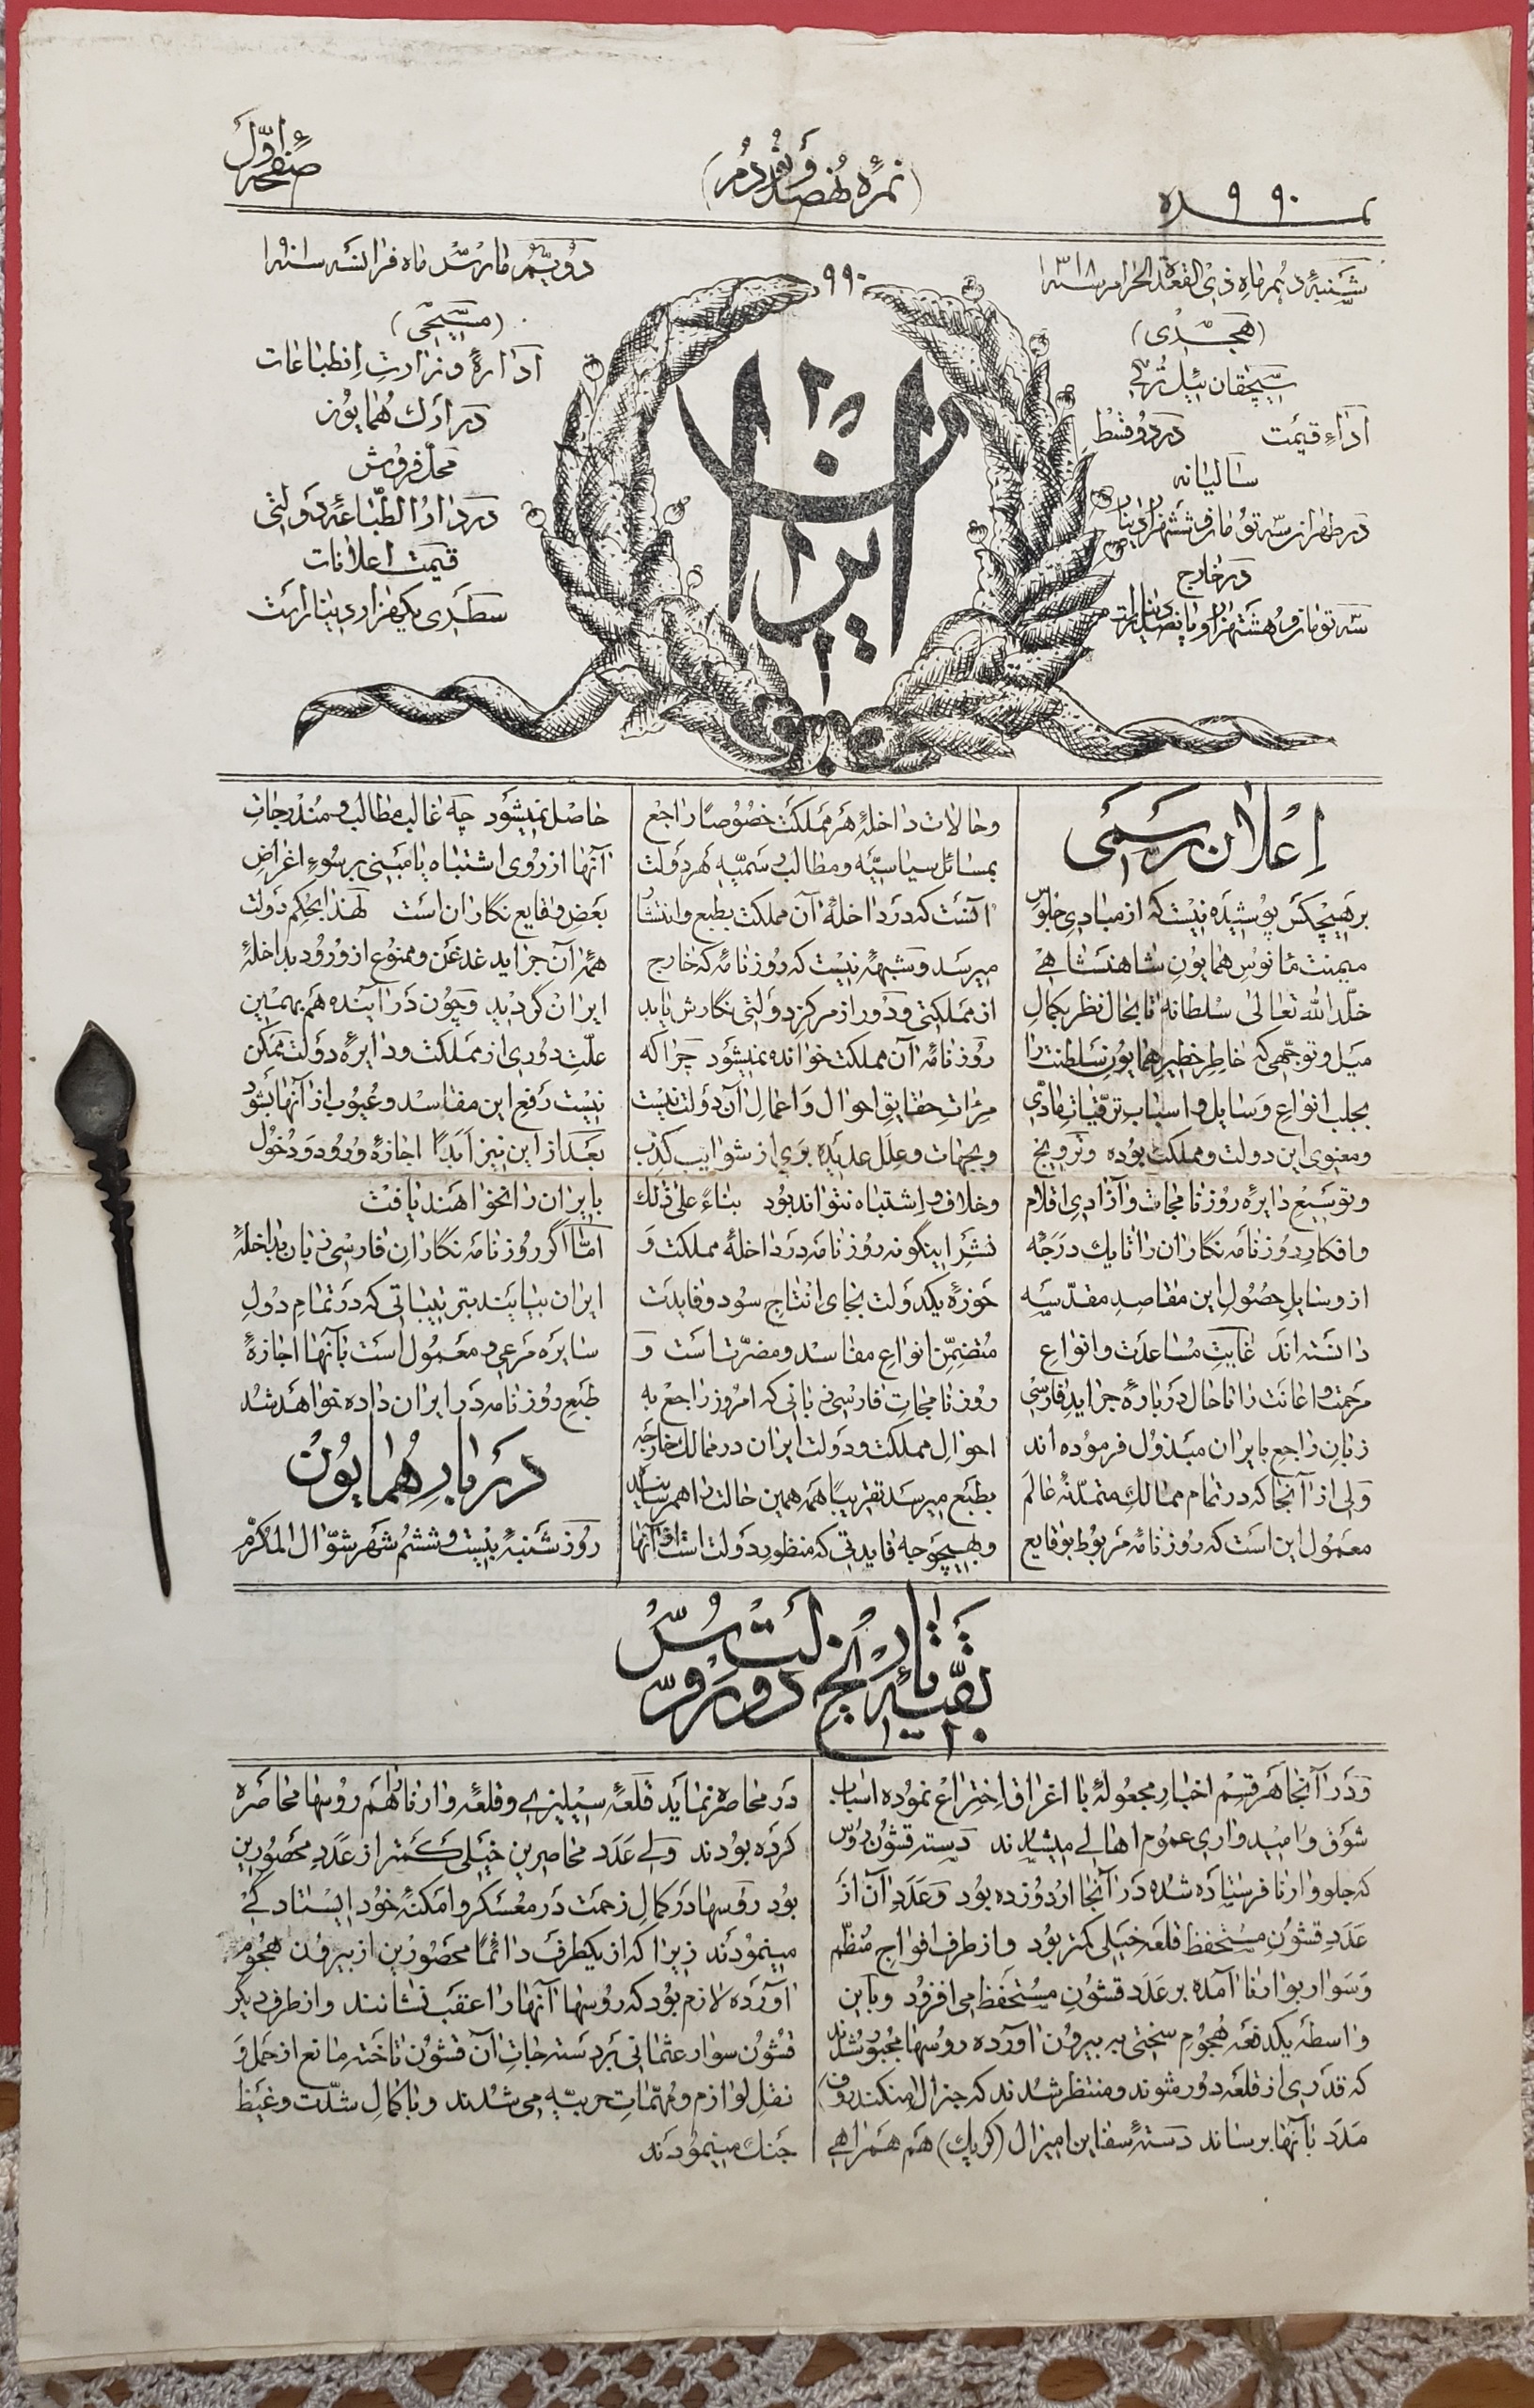 نمره ۹۹۰
(نمرهٔ نهصد و نودم)
صفحهٔ اوّل
شنبهٔ دهم ماهِ ذی القعدة الحرام سنه ۱۳۱۸
(هجری)
سیچقان ئیل ترکی
اداءِ قیمت در دو قسط
سالیانه
در طهران سه تومان و ششهزار دینار
در خارج
سه تومان و هشتهزار و پانصد دینار است
۹۹۰
ایران
دویّم مارس ماه فرانسه سنه ۱۹۰۱
(مسیحی)
ادارهٔ وزارتِ انطباعات
در ارک همایون
محلّ فروش
در دار الطّباعهٔ دولتی
قیمت اعلانات
سطری یکهزار دینار است
اعلان رسمی
بر هیچکس پوشیده نیست که از مبادی جلوس
میمنت مأنوس همایونِ شاهنشاهی
خلّد الله تعالی سلطانه تا بحال نظر بکمالِ
میل و توجّهی که خاطر خطیر همایون سلطنت را
بجلب انواعِ وسایل و اسبابِ ترقّیاتِ مادّی
و معنوی این دولت و مملکت بوده و ترویج
و توسیعِ دایرهٔ روزنامجات و آزادیِ اقلام
و افکارِ روزنامه نگاران را تا یک درجه
از وسایلِ حصولِ این مقاصدِ مقدّسه
دانسته اند غایتِ مساعدت و انواعِ
مرحمت و اعانت را تا حال دربارهٔ جرایدِ فارسی
زبانِ راجع بایران مبذول فرموده اند
ولی از آنجا که در تمام ممالکِ متمدّنهٔ عالم
معمول این است که روزنامهٔ مربوط بوقایع
و حالات داخلهٔ هر مملکت خصوصاً راجع
بمسائل سیاسیّه و مطالب رسمیّهٔ هر دولت
آنست که در داخلهٔ آن مملکت بطبع و انتشار
میرسد و شبهه نیست که روزنامهٔ که خارج
از مملکتی و دور از مرکز دولتی نگارش یابد
روزنامهٔ آن مملکت خوانده نمیشود چرا که
مرآتِ حقایقِ احوال و اعمالِ آن دولت نیست
و بجهات و عللِ عدیده بری از شوایب کذب
و خلاف و اشتباه نتواند بود بناءً علی ذلک
نشرِ اینگونه روزنامه در داخلهٔ مملکت و
حوزهٔ یکدولت بجای انتاجِ سود و فایدت
متضمّنِ انواعِ مفاسد و مضرّت است و
روزنامجاتِ فارسی زبانی که امروز راجع به
احوالِ مملکت و دولت ایران در ممالک خارجه
بطبع میرسد تقریباً همه همین حالت را بهم رسانیده
و بهیچوجه فایدتی که منظورِ دولت است از آنها
حاصل نمیشود چه غالب مطالب و مندرجاتِ
آنها از روی اشتباه یا مبنی بر سوءِ اغراضِ
بعض وقایع نگاران است لهذا بحکم دولت
همهٔ آن جراید غدغن و ممنوع از ورود بداخلهٔ
ایران گردید و چون در آینده هم بهمین
علّتِ دوری از مملکت و دایرهٔ دولت ممکن
نیست رفع این مفاسد و عیوب از آنها بشود
بعد از این نیز ابداً اجازهٔ ورود و دخول
بایران را نخواهند یافت
امّا اگر روزنامه نگارانِ فارسی زبان بداخلهٔ
ایران بیایند بترتیباتی که در تمامِ دولِ
سایره مرعی و معمول است بآنها اجازهٔ
طبعِ روزنامه در ایران داده خواهد شد
دربار همایون
روز شنبهٔ بیست و ششم شهر شوّال المکرّم
بقیّهٔ تاریخ دولت روس و پروس
و در آنجا هر قسم اخبار مجعولهٔ با اغراق اختراع نموده اسباب
شوق و امیدواری عموم اهالی میشدند دسته قشون روس
که جلو وارنا فرستاده شده در آنجا اردو زده بود و عددِ آن از
عددِ قشونِ مستحفظ قلعه خیلی کمتر بود و از طرف افواجِ منظّم
و سوار بوارنا آمده بر عدد قشونِ مستحفظ می افزود و باین
واسطه یکدفعه هجومِ سختی به بیرون آورده روسها مجبور شدند
که قدری از قلعه دور شوند و منتظر شدند که جنرال (منکندروف)
مدد بآنها برساند دستهٔ سفاین امیرال (کریک) هم همراهی
در محاصره نماید قلعهٔ سیلیزی و قلعهٔ وارنا را هم روسها محاصره
کرده بودند ولی عدد محاصرین خیلی کمتر از عدد محصورین
بود روسها در کمالِ زحمت در معسکر و امکنهٔ خود ایستادگی
مینمودند زیرا که از یکطرف دائماً محصورین از بیرون هجوم
آورده لازم بود که روسها آنها را عقب نشانند و از طرف دیگر
قشونِ سوار عثمانی بر دسته جاتِ آن قشون تاخته مانع از حمل و
نقلِ لوازم و مهمّاتِ حربیّه می شدند و با کمالِ شدّت و غیظ
جنک مینمودند